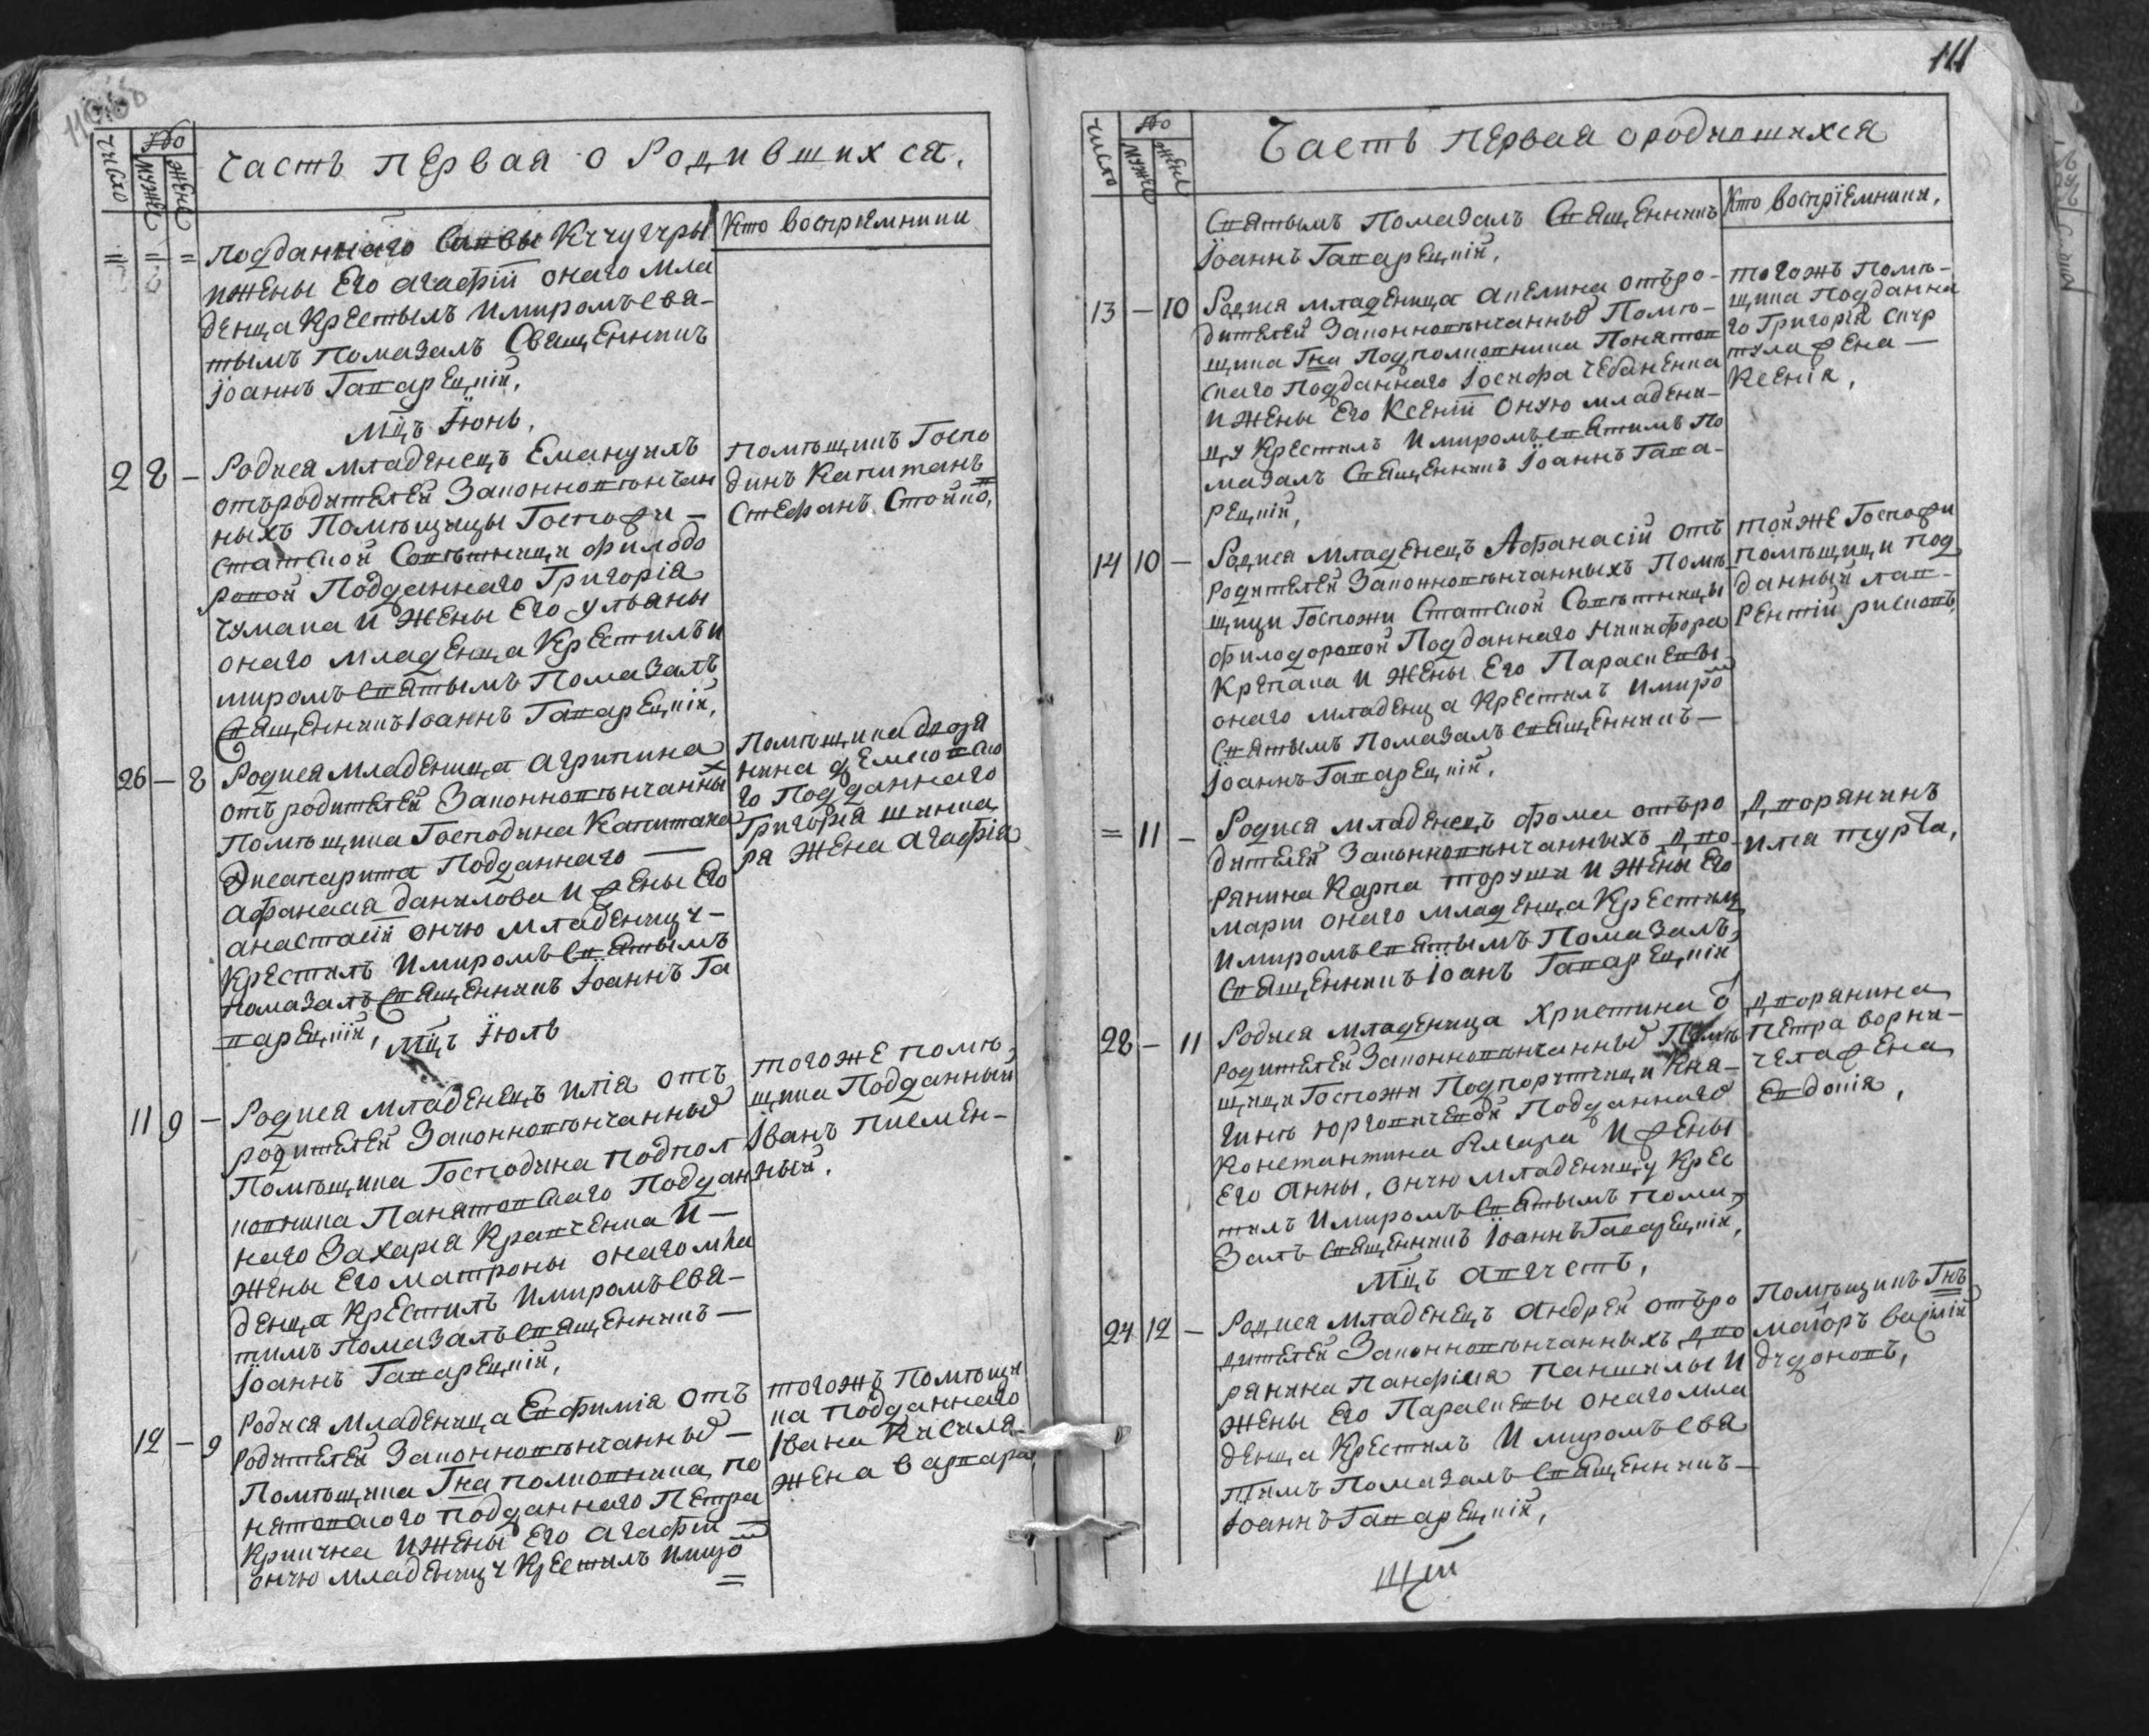 Число
No
мужес
женс
Часть первая о родившихся.
Кто восприемники
подданнаго Саввы Кучугуры
и жены его Агафіи онаго мла
денца крестилъ и миромъ свя-
тымъ помазалъ Священникъ
Іоаннъ Гаварецкій,
Мцъ Іюнь,
2 8 -
Родися младенецъ Емануилъ
отъ родителей законновѣнчан
ныхъ помѣщицы Госпожи -
статской совѣтницы Филодо
ровой подданнаго Григорія
Чумака и жены его Ульяны
онаго младенца крестилъ и
миромъ святымъ помазалъ
Священникъ Іоаннъ Гаварецкій,
помѣщикъ Госпо
динъ Капитанъ
Стефанъ Стойко,
26 - 8
Родися младеница Агрипина
отъ родителей законновѣнчанны
х
помѣщика Господина Капитана
подданнаго —
Афанасія Данилова и жены его
Анастасіи оную младеницу -
крестилъ и миромъ святымъ
помазалъ Священникъ Іоаннъ Га
варецкій, Мцъ Іюль
подданнаго
Григорія
ра жена Агафія
11 9 -
Родися младенецъ Илія отъ
родителей законновѣнчанных
помѣщика Господина подпол
ковника Панятовскаго поддан
наго Захарія Кравченка и -
жены его Матроны онаго мла
денца крестилъ и миромъ свя-
тимъ помазалъ священникъ —
Іоаннъ Гаварецкій,
тогоже помѣ
щика подданный
Іванъ писмен-
ный.
12 - 9
Родися младеница Евфимія отъ
родителей законновѣнчанных —
помѣщика Гна полковника по
нятовского подданнаго Петра
и жены его Агафіи —
оную младеницу крестилъ и миро
м
=
тогожъ помѣщи
ка подданнаго
Івана Кисиля
жена Варвара,
111
Число
No
мужес
женс
Часть первая о родившихся
Кто воспріемники,
святымъ помазалъ священникъ
Іоаннъ Гаварецкій,
13 - 10
Родися младеница Акелина отъ ро-
дителей законновѣнчанных помѣ-
щика Гна подполковника Понятов
скаго подданнаго Іосифа Чебаненка
и жены его Ксеніи оную младени-
цу крестилъ и миромъ святимъ по
мазалъ священникъ Іоаннъ Гава-
рецкій,
тогожъ помѣ-
щика подданна
го Григорія
жена —
Ксенія,
14 10 -
Родися младенецъ Афанасій отъ
родителей законновѣнчанныхъ помѣ
щици Госпожи Статской Совѣтницы
Филодоровой подданнаго Никифора
и жены его Параскевы
онаго младенца крестилъ и миро
м
святымъ помазалъ священникъ —
Іоаннъ Гаварецкій,
тойже Госпожи
помѣщици под
данный Лав-
рентій
= 11 -
Родися младенецъ Фома отъ ро
дителей законновѣнчанныхъ дво
рянина Карпа и жены его
Марѳ онаго младенца крестилъ
и миромъ святымъ помазалъ,
Священникъ Іоанъ Гаварецкій
дворянинъ
Илія
28 - 11
Родися младеница Христина о
родителей законновѣнчанных помѣ
щици Госпожи Подпорутчици Кня-
гинѣ подданнаго
Константина и жены
его Анны, оную младеницу крес
тилъ и миромъ святымъ пома
залъ священникъ Іоаннъ Гаварецкій,
дворянина
Петра
жена
Евдокія,
Мцъ Августъ,
24 12 -
Родися младенецъ Андрей отъ ро
дителей законновѣнчанныхъ дво
рянина Панфила и
жены его Параскевы онаго мла
денца крестилъ и миромъ свя
тимъ помазалъ священникъ —
Іоаннъ Гаварецкій,
помѣщикъ Гнъ
маіоръ Василій